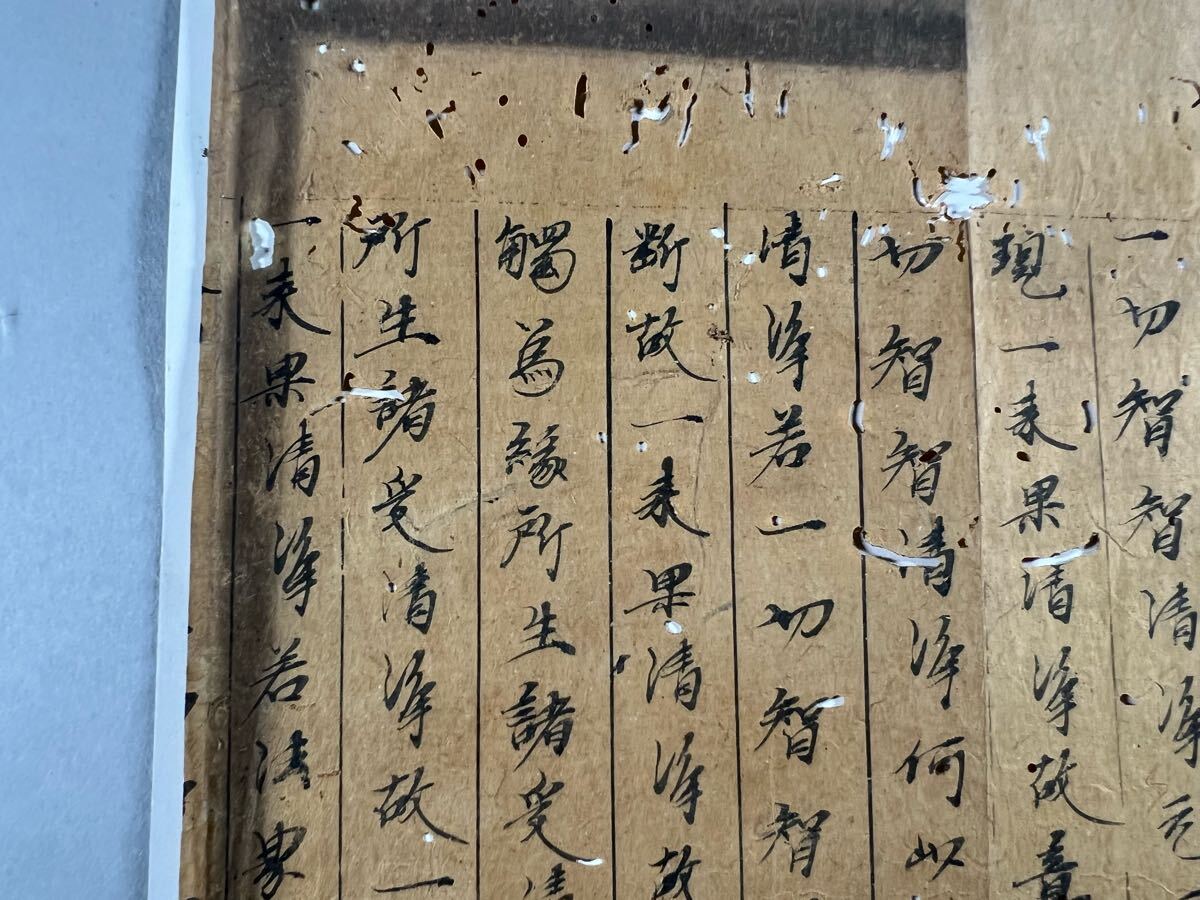 一切智智清淨无
現一来果清淨故音
切智智清淨何以
清淨若一切智智
断故一来果清淨故
觸為緣所生諸受清
所生諸受清淨故一
一来果清淨若法界